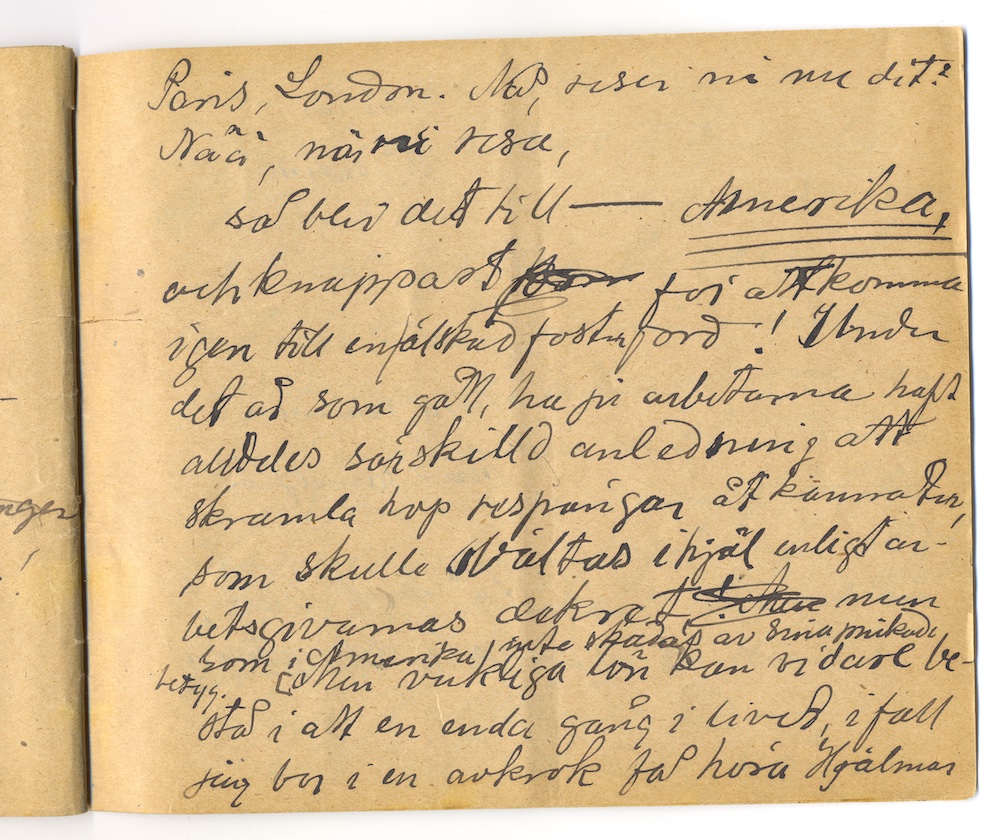 nger
Paris, London. Nå, reser ni nu dit?
Nää, när vi resa,
så blir det till — Amerika,
och knappast för att komma
igen till en älskad fosterjord! Under
det år som gått, ha ju arbetarna haft
alldeles särskilld anledning att
skramla hop respängar åt kamrater,
som skulle svältas ihjäl enligt ar-
betsgivarnas dekret men
som i Amerika inte skadas av sina prickade
betyg. [Men verkliga lön kan vidare be-
stå i att en enda gång i livet, ifall
jag bor i en avkrok få höra Hjälmar